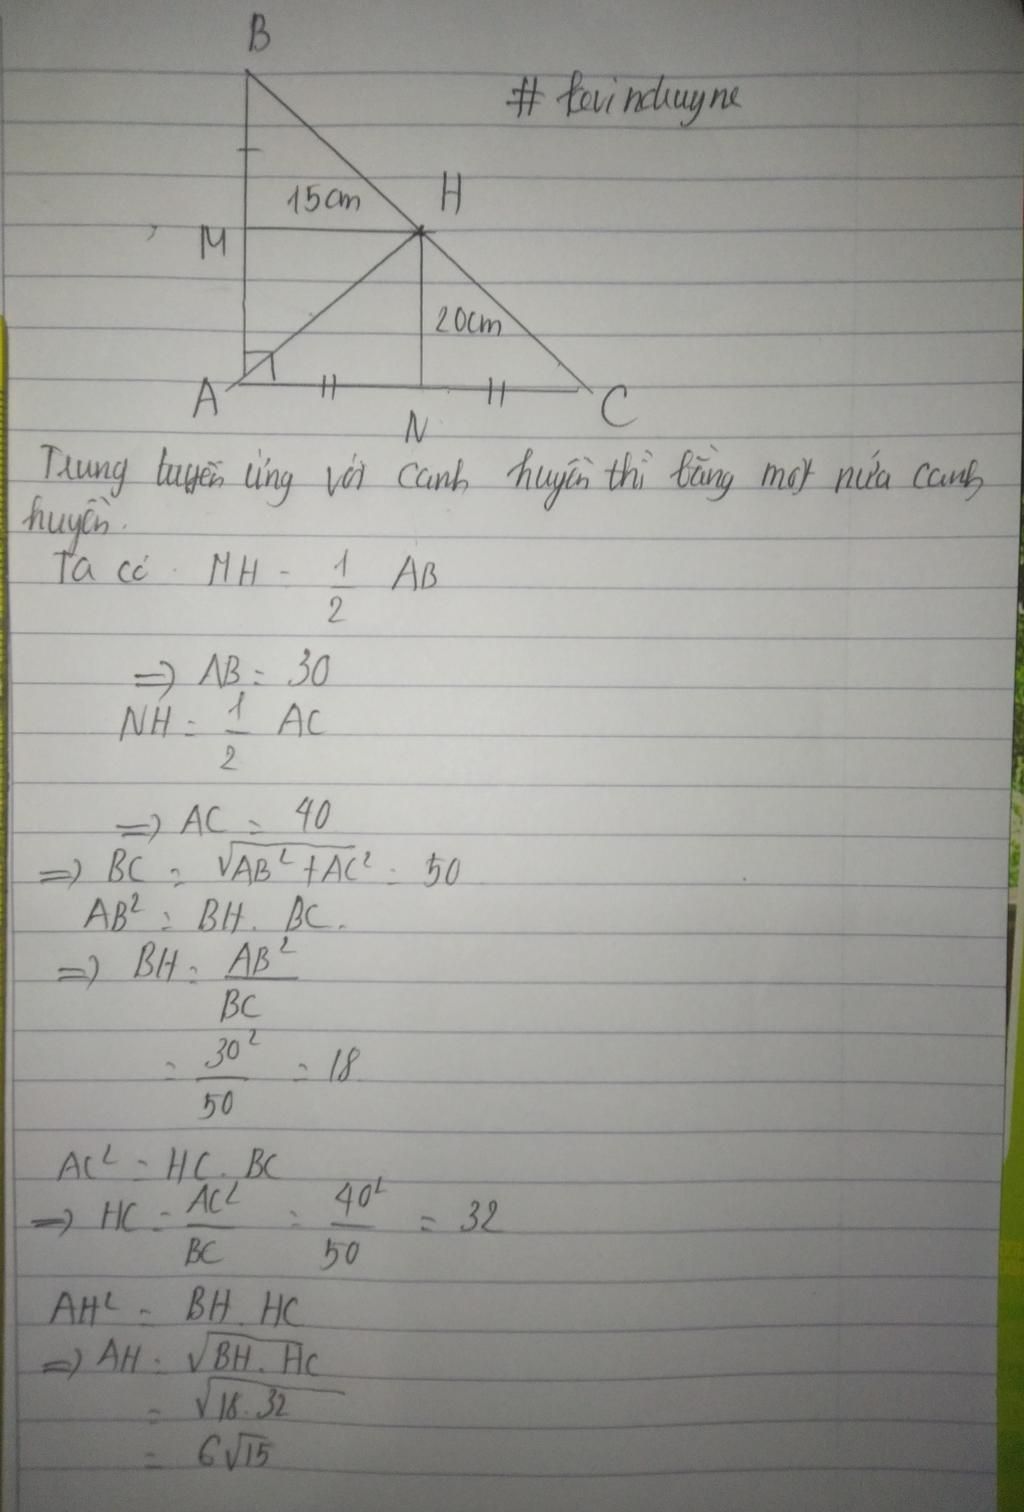 B
# kevinduyne
15cm
H
M
20cm
A
N
C
Trung tuyến ứng với canh huyền thì bằng một nửa canh
huyền.
Ta có MH = 1/2 AB
=> AB = 30
NH = 1/2 AC
=> AC = 40
=> BC = √AB² + AC² = 50
AB² = BH. BC.
=> BH = AB²/BC
= 30²/50 = 18
AC² = HC. BC
=> HC = AC²/BC = 40²/50 = 32
AH² = BH. HC
=> AH = √BH. HC
= √18.32
= 6√15